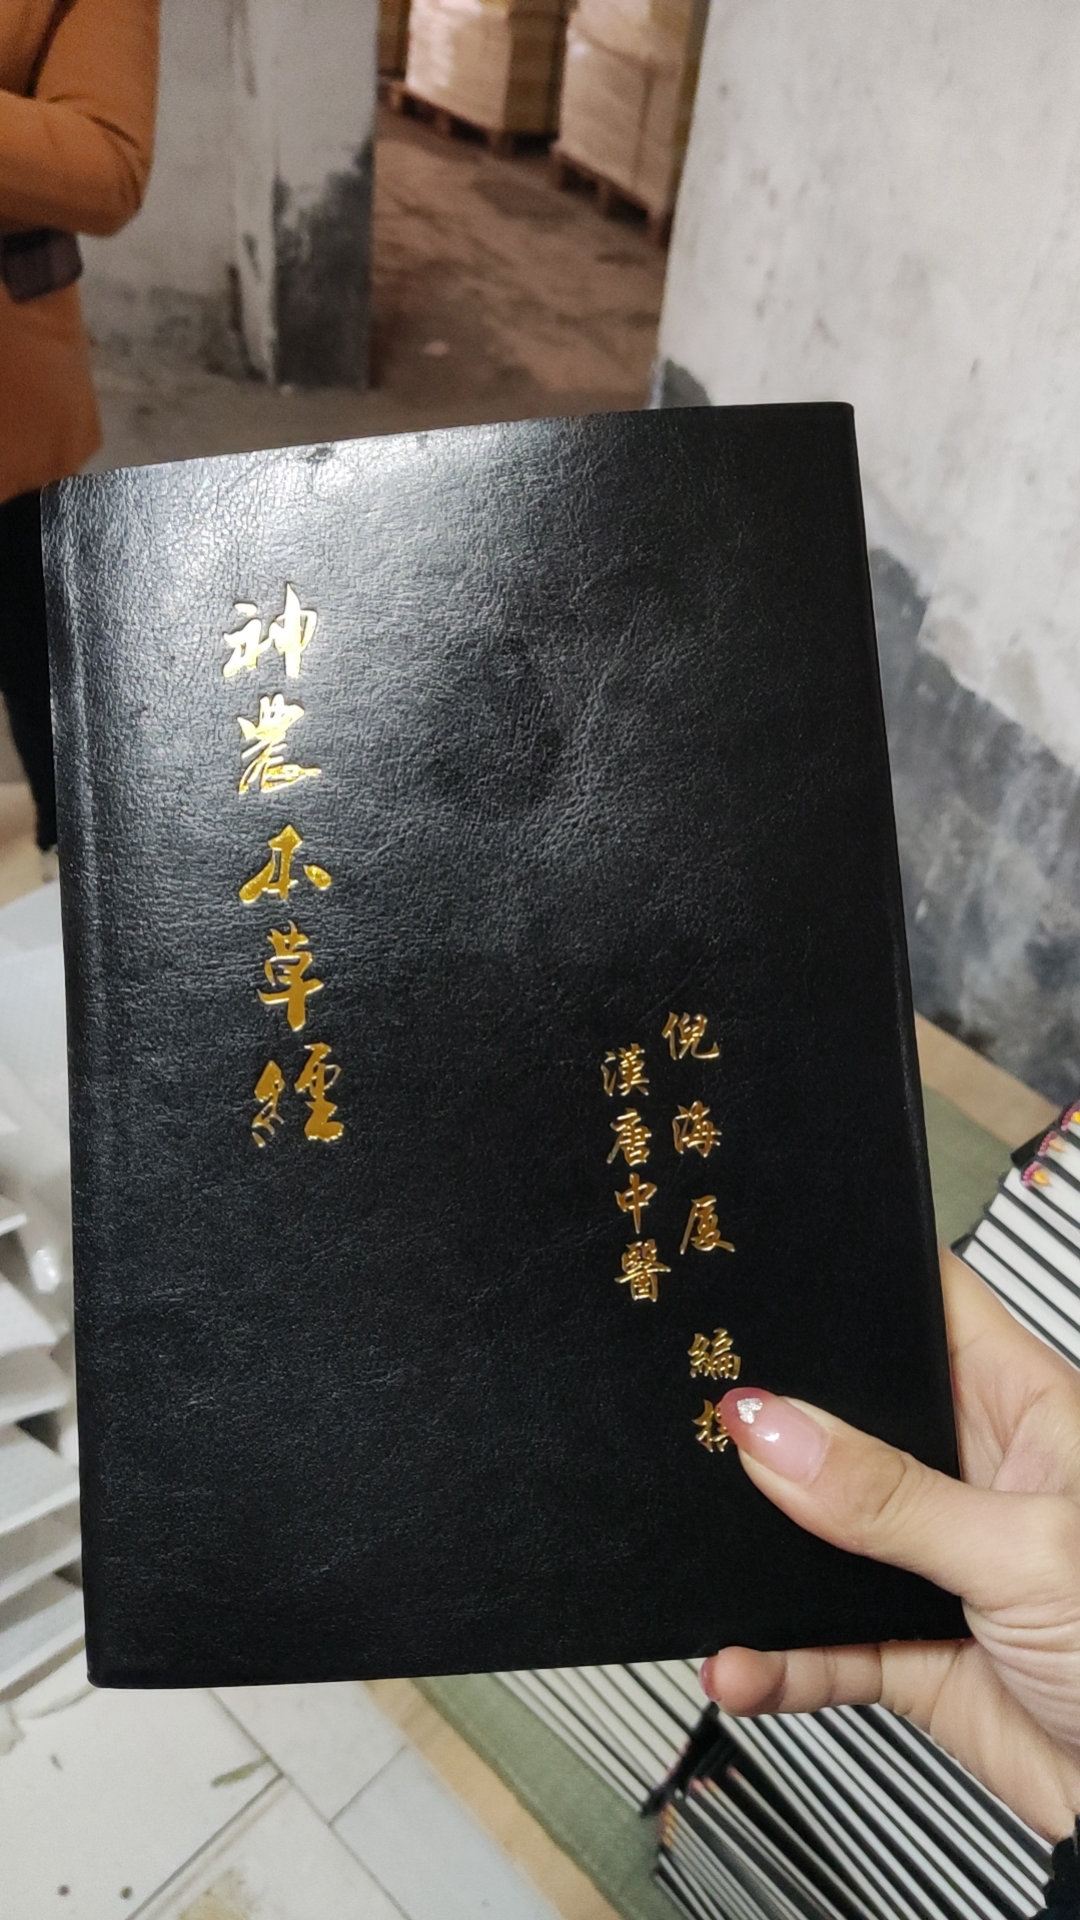 神農本草經
倪海厦 編撰
漢唐中醫